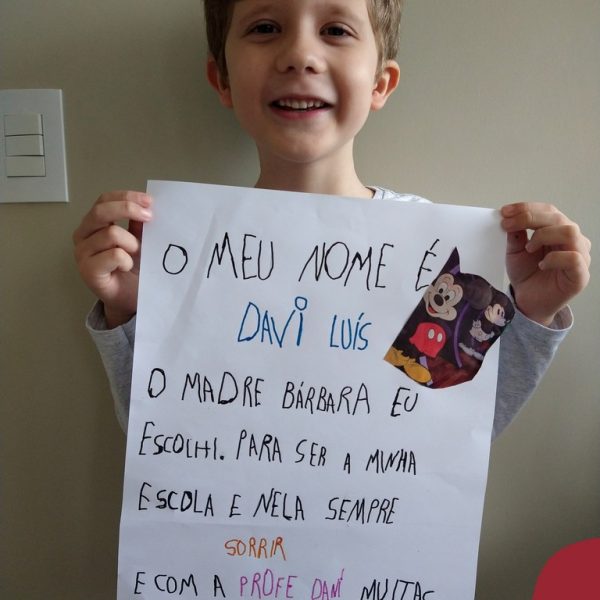 O MEU NOME É
DAVI LUÍS
O MADRE BÁRBARA EU
ESCOLHI. PARA SER A MINHA
ESCOLA E NELA SEMPRE
SORRIR
E COM A PROFE DANI MUITAS